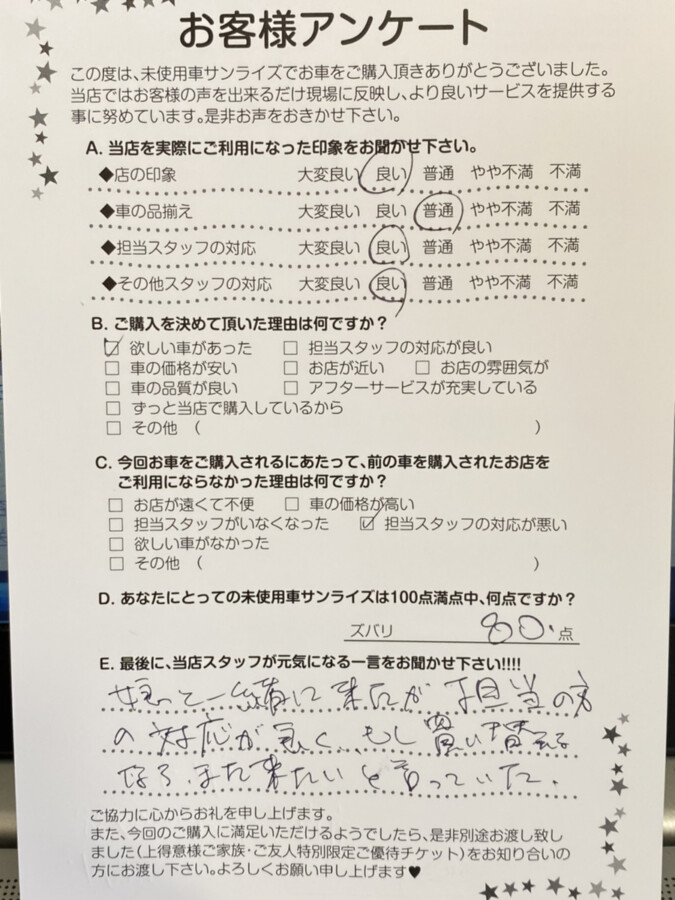 お客様アンケート
この度は、未使用車サンライズでお車をご購入頂きありがとうございました。
当店ではお客様の声を出来るだけ現場に反映し、より良いサービスを提供する
事に努めています。是非お声をおきかせ下さい。
A. 当店を実際にご利用になった印象をお聞かせ下さい。
◆店の印象 大変良い 良い 普通 やや不満 不満
◆車の品揃え 大変良い 良い 普通 やや不満 不満
◆担当スタッフの対応 大変良い 良い 普通 やや不満 不満
◆その他スタッフの対応 大変良い 良い 普通 やや不満 不満
B. ご購入を決めて頂いた理由は何ですか？
☑ 欲しい車があった □ 担当スタッフの対応が良い
□ 車の価格が安い □ お店が近い □ お店の雰囲気が
□ 車の品質が良い □ アフターサービスが充実している
□ ずっと当店で購入しているから
□ その他 （ ）
C. 今回お車をご購入されるにあたって、前の車を購入されたお店を
ご利用にならなかった理由は何ですか？
□ お店が遠くて不便 □ 車の価格が高い
□ 担当スタッフがいなくなった ☑ 担当スタッフの対応が悪い
□ 欲しい車がなかった
□ その他 （ ）
D. あなたにとっての未使用車サンライズは100点満点中、何点ですか？
ズバリ 80. 点
E. 最後に、当店スタッフが元気になる一言をお聞かせ下さい!!!!
と一緒に来たが担当の方
の対応が良く、もし買い替える
なら、また来たいと言っていた。
ご協力に心からお礼を申し上げます。
また、今回のご購入に満足いただけるようでしたら、是非別途お渡し致し
ました（上得意様ご家族・ご友人特別限定ご優待チケット）をお知り合いの
方にお渡し下さい。よろしくお願い申し上げます♥